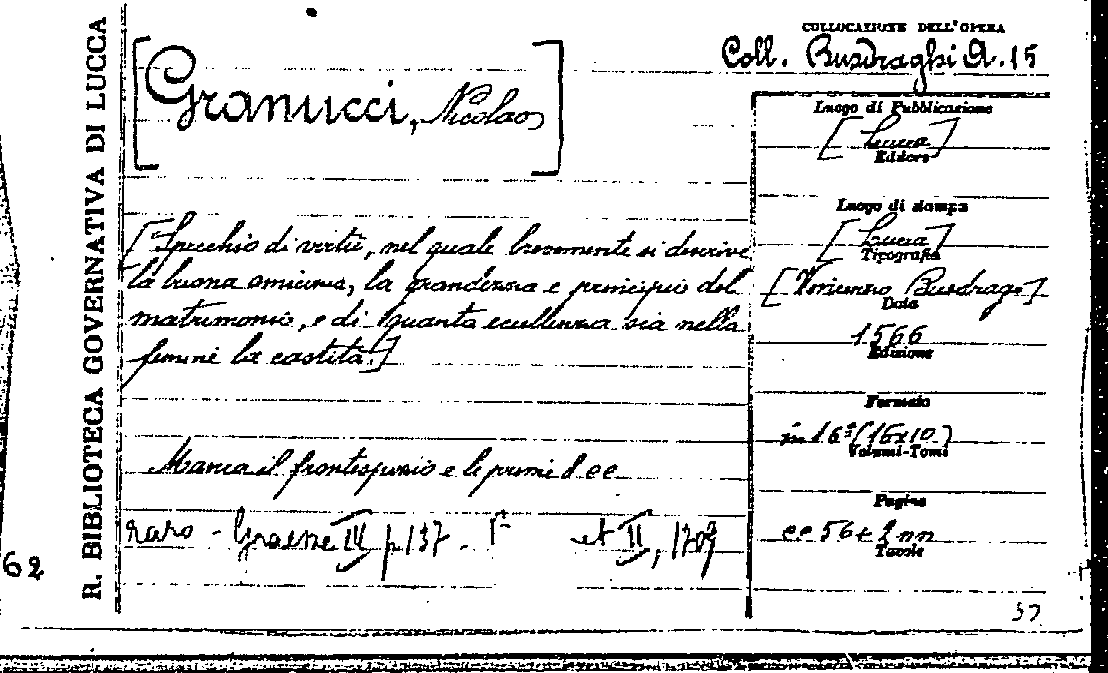 R. BIBLIOTECA GOVERNATIVA DI LUCCA
COLLOCAZIONE DELL'OPERA
Coll. Busdraghi A.15
[Granucci, Nicolao]
[Specchio di virtù, nel quale brevemente si descrive
la buona amicizia, la grandezza e principio del
matrimonio, e di quanta eccellenza sia nella
femine la castità.]
Manca il frontespizio e le prime 1 cc
raro - Graesse III p 137 - 1ª et II, 1709
Luogo di Pubblicazione
[Lucca]
Editore
Luogo di stampa
[Lucca]
Tipografia
[Vincenzo Busdrago]
Data
1566
Edizione
Formato
in 16° (16x10)
Volumi-Tomi
Pagine
cc 56 + 2 nn
Tavole
62
57